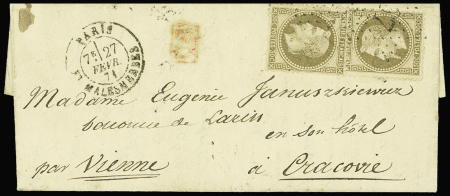 PARIS
7E 27
FEVR.
71
Bt MALESHERBES
Madame Eugénie Januszkiewicz
baronne de
en son hôtel
par Vienne à Cracovie